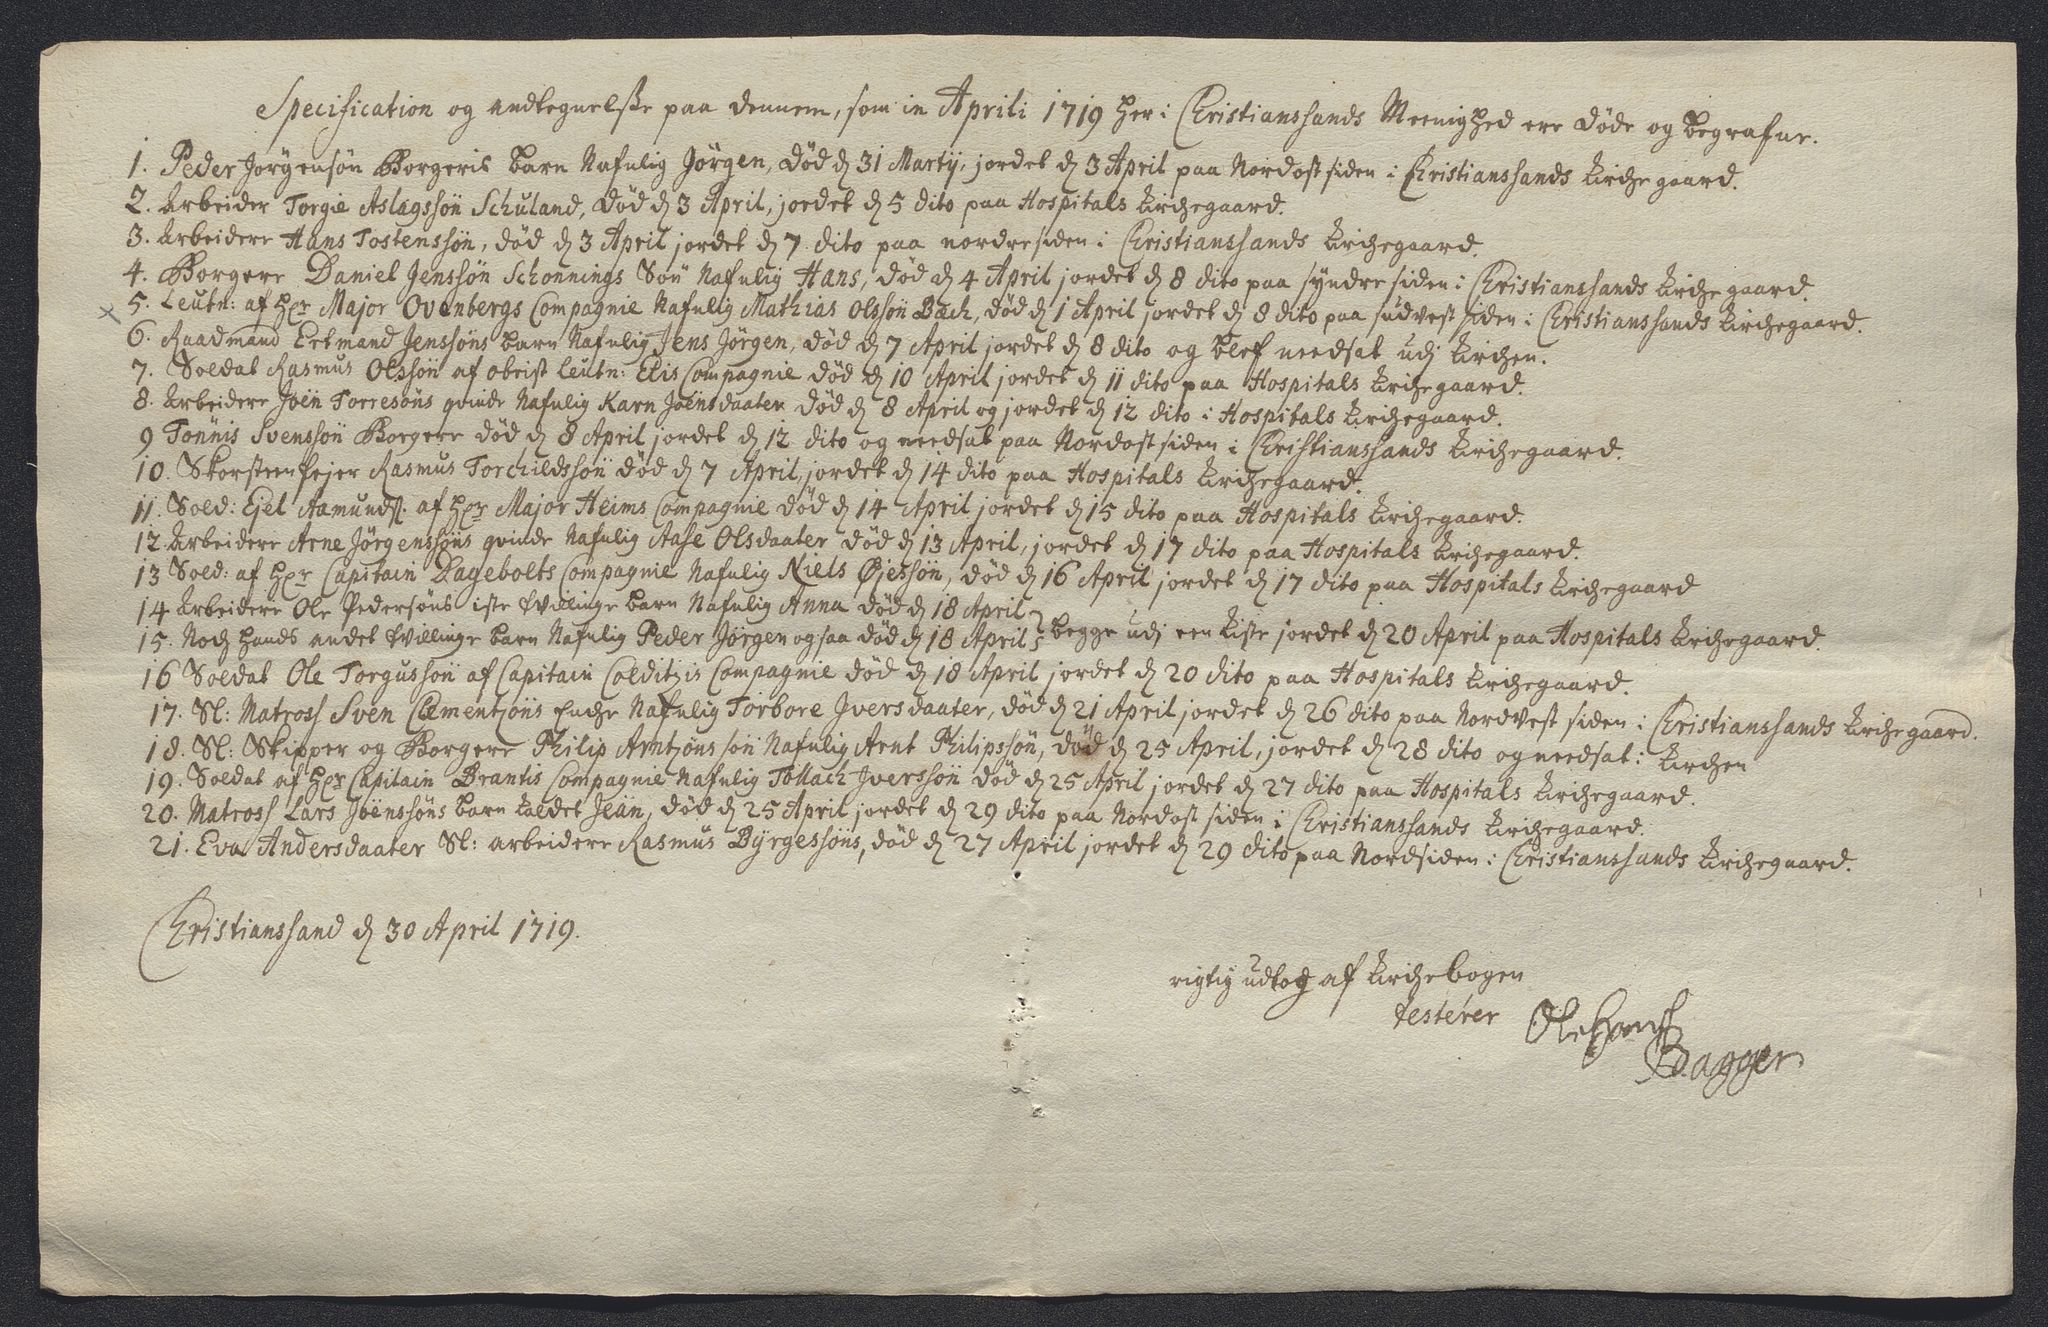 Specification og andtegnelsse paa dennem, som in Aprili 1719 her i Christianssands Meenighed ere døde og begrafne.
1. Peder Jørgensøn Borgeris barn Nafnlig Jørgen, død d 31 Martij, jordet d 3 April paa Nordost siden i Christianssands Kirche gaard.
2. Arbeider Torgie Aslagssøn Schuland, død d 3 April, jordet d 5 dito paa Hospitals Kirchegaard.
3. Arbeidere Hans Tostenssøn, død d 3 April jordet d 7 dito paa nordre siden i Christianssands Kirchegaard.
4. Borgere Daniel Jenssøn Schonnings Søn Nafnlig Hans, død d 4 April jordet d 8 dito paa syndre siden i Christianssands Kirche gaard.
5. Leutn: af Hr Major Ovenbergs Compagnie Nafnlig Mathias Olssøn Bach, død d 1 April jordet d 8 dito paa sudvest siden i Christianssands Kirchegaard.
6. Raadmand Ertmand Jenssøns barn Nafnlig Jens Jørgen, død d 7 April jordet d 8 dito og blef needsat udj Kirchen.
7. Soldat Rasmus Olssøn af obrist Leutn: Elis Compagnie død d 10 April jordet d 11 dito paa Hospitals Kirchegaard.
8. Arbeidere Joën Torresøns qvinde Nafnlig Karn Joënsdaater død d 8 April og jordet d 12 dito i Hospitals Kirchegaard.
9 Tønnis Svenssøn Borgere død d 8 April jordet d 12 dito og needsat paa Nordost siden i Christianssands Kirchegaard.
10. Skorsteenfejer Rasmus Torchildssøn død d 7 April, jordet d 14 dito paa Hospitals Kirchegaard.
11. Sold: Ejel Aamunds: af Hr Major Heims Compagnie død d 14 April jordet d 15 dito paa Hospitals Kirchegaard.
12. Arbeidere Arne Jørgenssøns qvinde Nafnlig Aase Olsdaater død d 13 April, jordet d 17 dito paa Hospitals Kirchegaard.
13 Sold: af Hr Capitain Dagebolts Compagnie Nafnlig Niels Øjessøn, død d 16 April jordet d 17 dito paa Hospitals Kirchegaard
14 Arbeidere Ole Pedersøns iste tvillinge barn Nafnlig Anna død d 18 April
15. Noch hands andet tvillinge barn Nafnlig Peder Jørgen ogsaa død d 18 April begge udj een Kiste jordet d 20 April paa Hospitals Kirchegaard.
16 Soldat Ole Torgussøn af Capitain Colditzis Compagnie død d 18 April jordet d 20 dito paa Hospitals Kirchegaard.
17. Sl: Matross Sven Clementzøns Enche Nafnlig Torbore Jversdaater, død d 21 April jordet d 26 dito paa Nordvest siden i Christianssands Kirche gaard.
18. Sl: Skipper og Borgere Philip Arntzøns søn Nafnlig Arnt Philipssøn, død d 25 April, jordet d 28 dito og needsat i Kirchen
19. Soldat af Hr Capitain Brantis Compagnie Nafnlig Tollach Jverssøn død d 25 April jordet d 27 dito paa Hospitals Kirchegaard.
20. Matross Lars Joënssøns barn kaldet Jean, død d 25 April jordet d 29 dito paa Nordost siden i Christianssands Kirchegaard.
21. Eva Andersdaater Sl: arbeidere Rasmus Byrgessøns, død d 27 April jordet d 29 dito paa Nordsiden i Christianssands Kirchegaard.
Christianssand d 30 April 1719.
rigtig udtog af Kirchebogen
testerer Ole Hans
Bagger